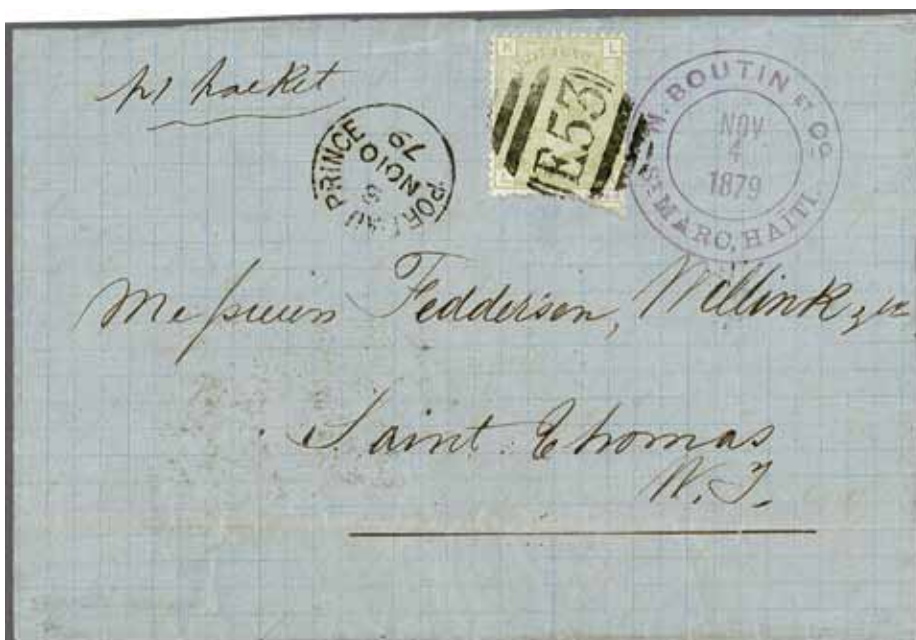 pr packet
PORT AU PRINCE
NO 10
79
K L
E53
W. BOUTIN ET CO.
NOV
4
1879
ST. MARC, HAITI.
Messieurs Feddersen, Willink & Co
Saint Thomas
W. I.